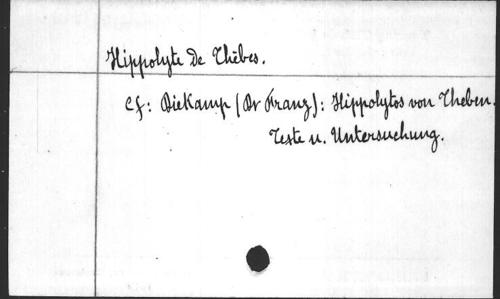 Hippolyte De Thèbes.
Cf: Diekamp (Dr Franz): Hippolytos von Theben.
Texte u. Untersuchung.